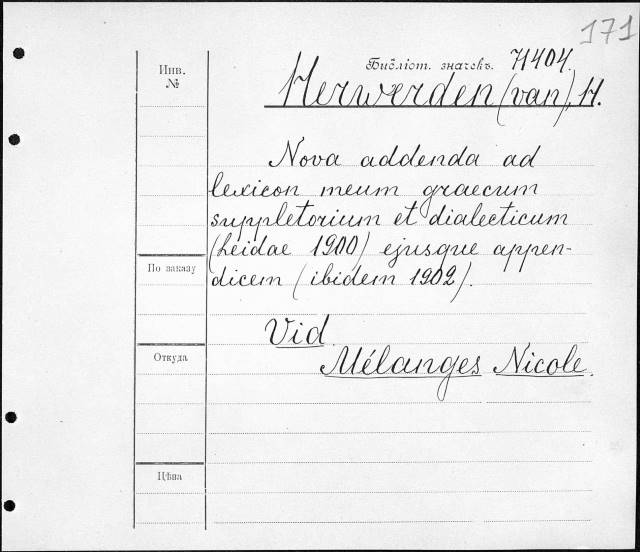 171
Инв.
№
Библіот. значекъ. 71404.
Herwerden (van), H.
Nova addenda ad
lexicon meum graecum
suppletorium et dialecticum
(Leidae 1900) ejusque appen-
dicem (ibidem 1902).
По заказу
Vid
Откуда
Mélanges Nicole.
Цѣна